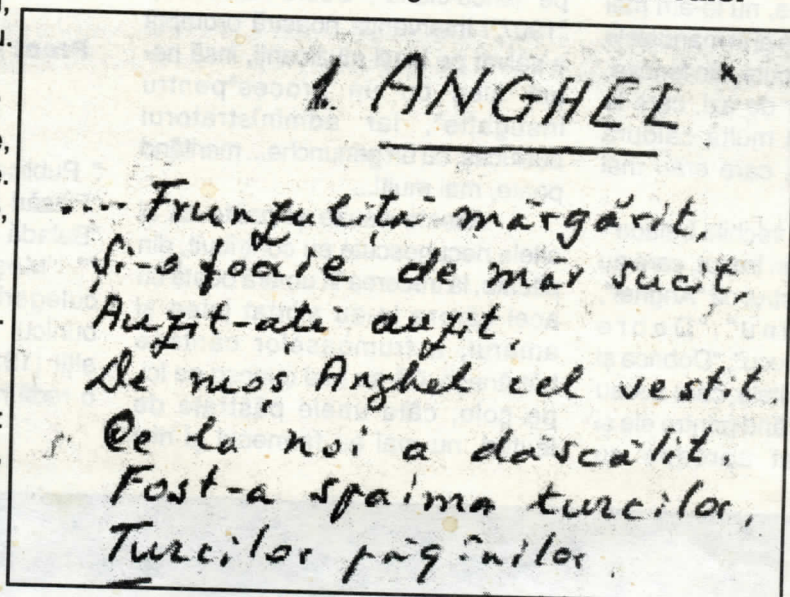 1. ANGHEL *
.... Frunzuliță mărgărit,
Și-o foaie de măr sucit,
Auzit-ați auzit,
De moș Anghel cel vestit
Ce la noi a dascălit,
Fost-a spaima turcilor,
Turcilor păgînilor